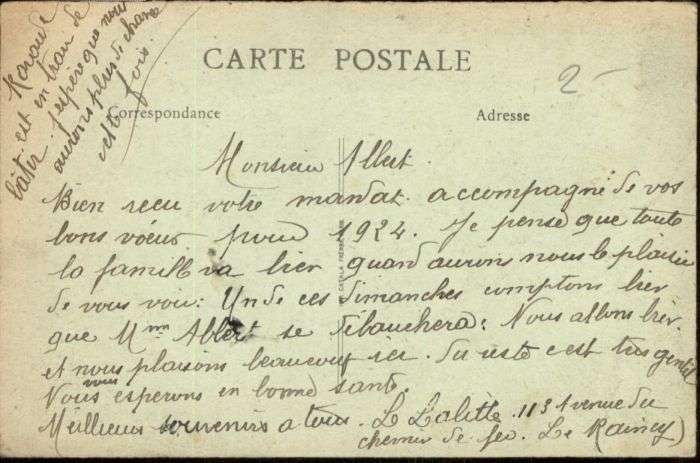 est en train de
bâtir. J'espère que nous
aurons plus de chance
cette fois.
CARTE POSTALE
2-
Correspondance
Adresse
Monsieur Albert.
Bien reçu votre mandat accompagné de vos
bons vœux pour 1924. Je pense que toute
la famille va bien quand aurons nous le plaisir
de vous voir: Un de ces dimanches comptons bien
que Mme Albert se débauchera: Nous allons bien.
et nous plaisons beaucoup ici. Du reste c'est très gentil
Nous vous esperons en bonne santé.
Meilleurs souvenirs a tous. 113 Avenue du
chemin de fer. Le Raincy)